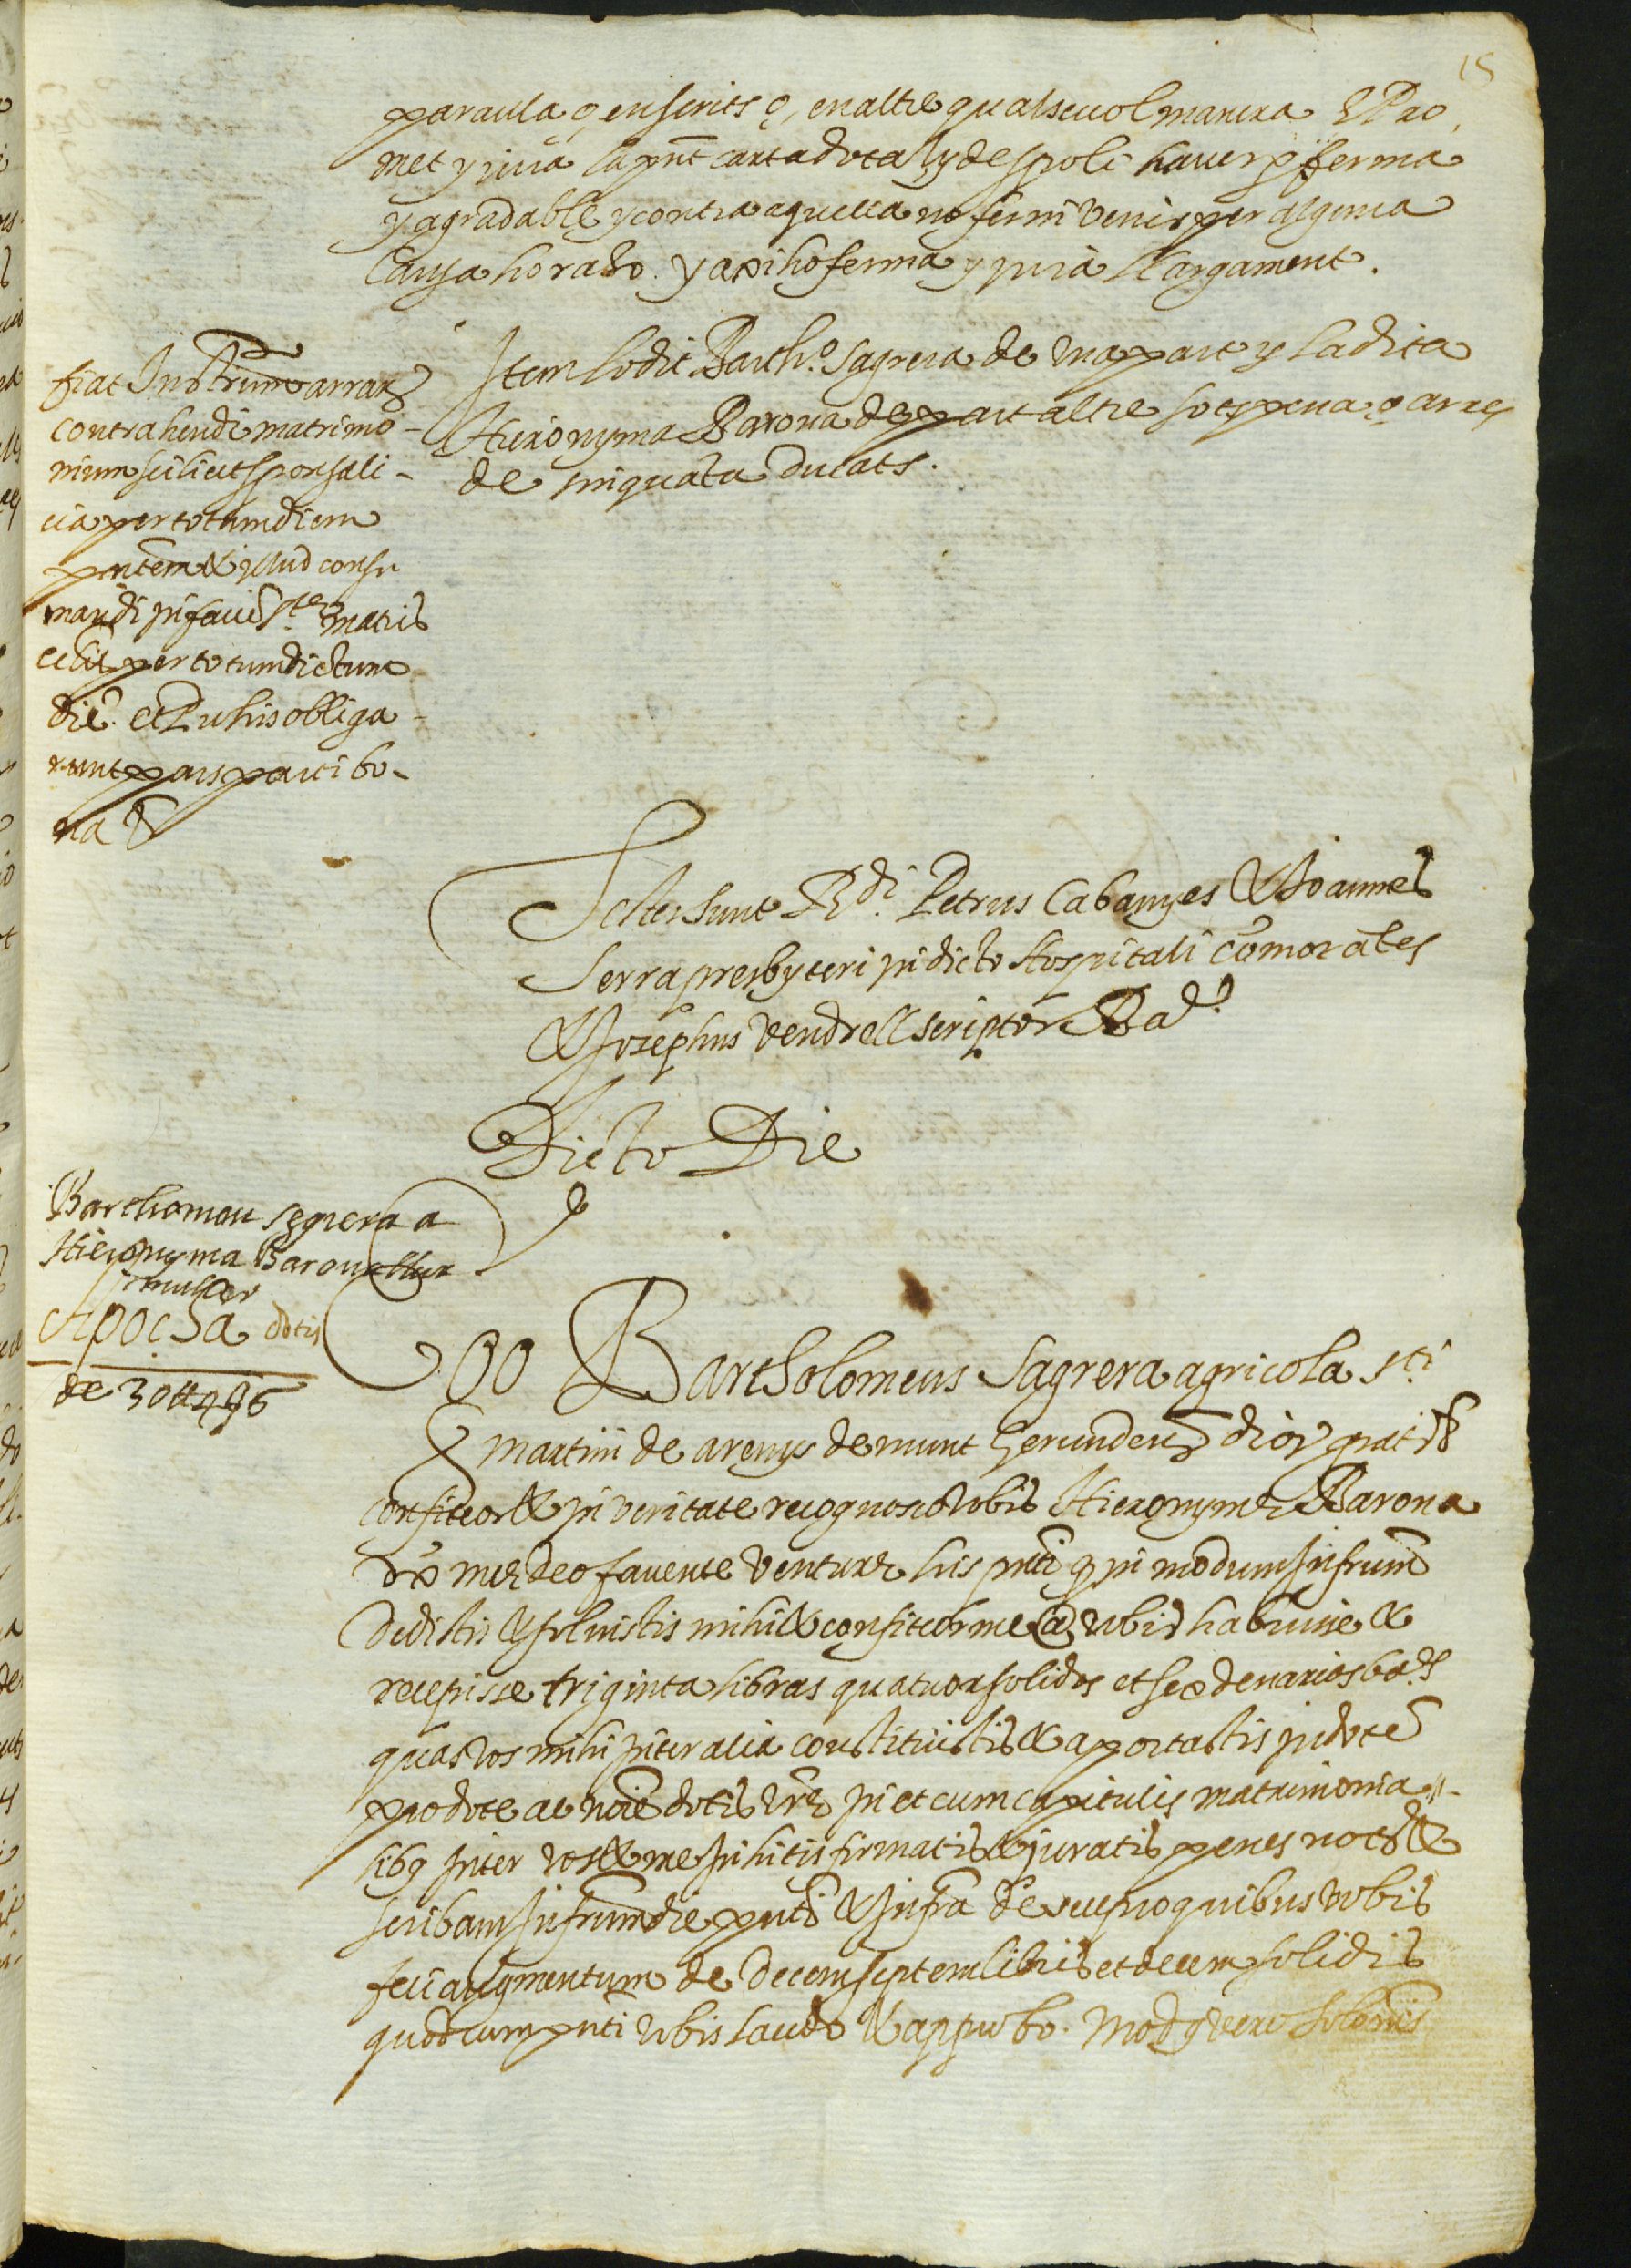 15
paraula o, en scrits o, en altre qualsevol manera E Pro
met y jura la pnt carta dotal y de spoli haver per ferma
y agradable y contra aquella no fer ni venir per alguna
causa ho raho. y axi ho ferma y jura llargament.
Item lo dit Barth.º Sagrera de una part y la dita
Hieronyma Barona de part altre sots pena o arres
de sinquãta ducats.
fiat Instrum arrarz
contrahendi matrimo-
nium scilicet sponsali-
cia per totum diem
pntem & illud consu
mandi in facie Ste matris
eccliæ per totum dictum
diē. et P his obliga-
runt pars parti bo-
na &
Testes sunt Rdi. Petrus Cabanyes & Joannes
Serra presbyteri in dicto Hospitali cōmorātes
& Josephus Vendrell scriptor Ba.
Dicto Die
Barthomeu Segrera a
Hieronyma Barona
muller
Apocha dotis
de 30 ℔ 4 s 6
Ego Bartholomeus Sagrera agricola Sti
Martini de arenys de munt Gerunden dioc. gratis
confiteor & in veritate recognosco vobis Hieronymæ Barona
deo favente venturæ his pntibus in modum infrum
dedistis & solvistis mihi & confiteor me a vobis habuisse &
recepisse triginta libras quatuor solidos et sex denarios ba.
quas vos mihi inter alia constituistis & aportastis in dotē
pro dote ac noīe dotis vræ in et cum capitulis matrimonia-
libq inter vos & me initis firmatis & juratis penes not. &
scribam infrum die pnti & infra de recepto quibus vobis
feci augmentum de decem septem libris et decem solidis
quod cum pnti vobis laudo & approbo. Modq vero solonis